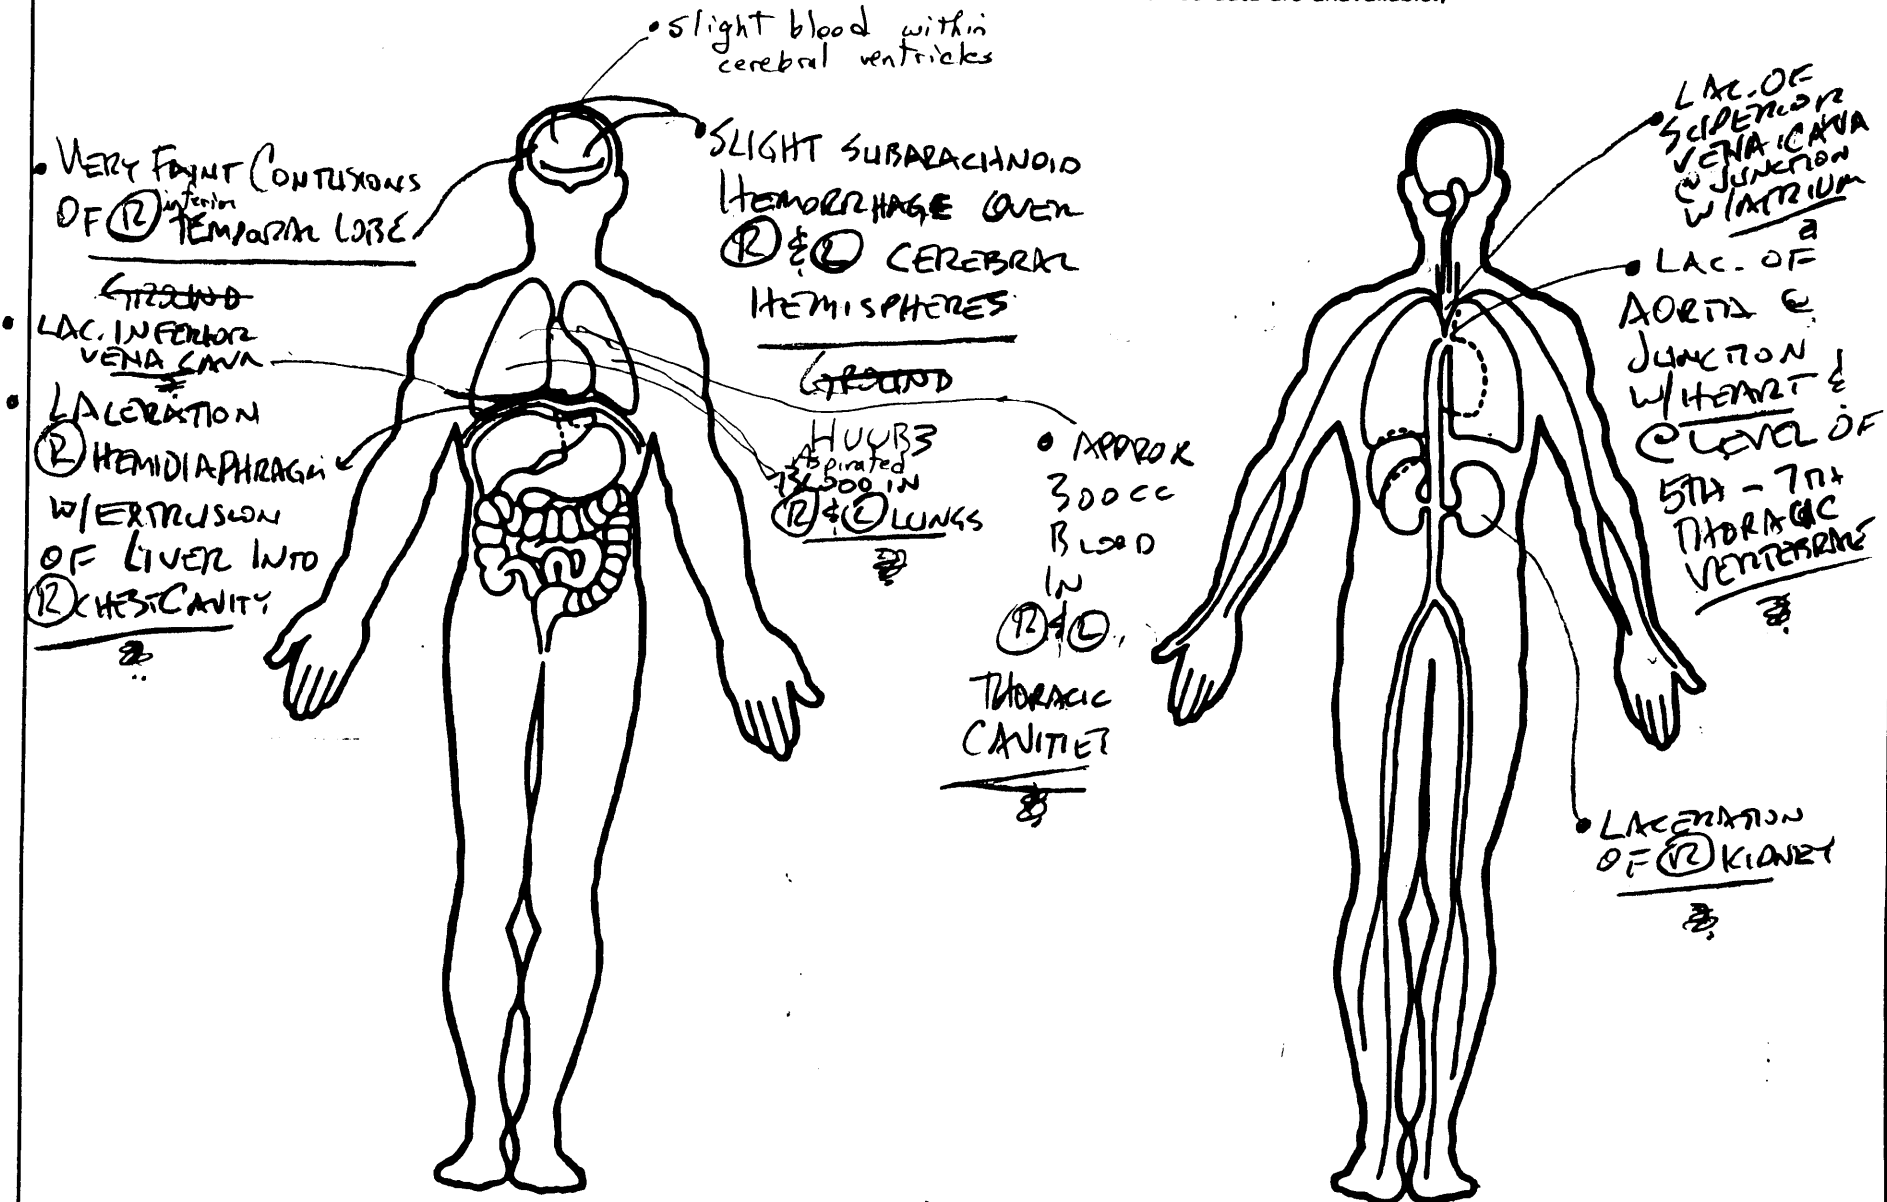 slight blood within
cerebral ventricles
VERY FAINT CONTUSIONS
OF R inferior
TEMPORAL LOBE
SLIGHT SUBARACHNOID
HEMORRHAGE OVER
R & L CEREBRAL
HEMISPHERES
LAC. INFERIOR
VENA CAVA
LACERATION
R HEMIDIAPHRAGM
W/EXTRUSION
OF LIVER INTO
R CHEST CAVITY
Aspirated
BLOOD IN
R & L LUNGS
APPROX
300cc
BLOOD
IN
R & L
THORACIC
CAVITIES
LAC. OF
SUPERIOR
VENA CAVA
@ JUNCTION
W/ATRIUM
LAC. OF
AORTA @
JUNCTION
W/HEART &
@ LEVEL OF
5TH - 7TH
THORACIC
VERTEBRAE
LACERATION
OF R KIDNEY